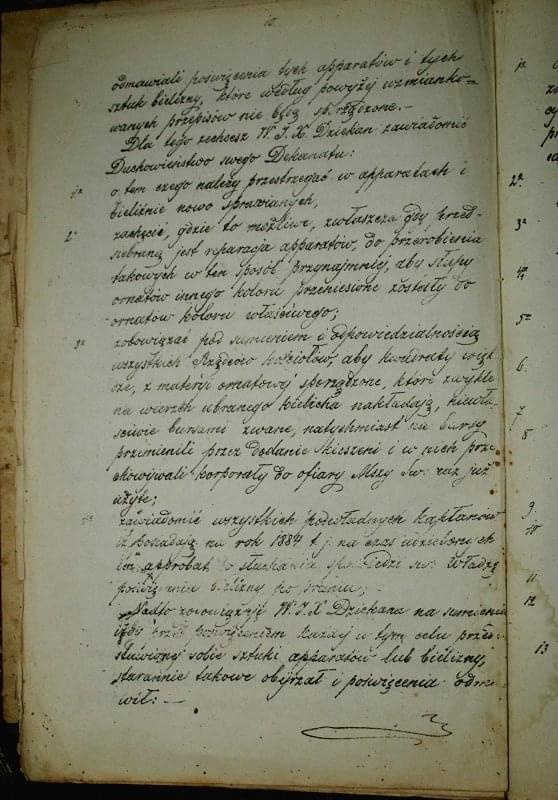 10.
odmawiali poświęcenia tych apparatów i tych
sztuk bielizny, które według powyżej wzmianko-
wanych przepisów nie będą sporządzone. -
Dla tego zechcesz W. J. X. Dziekan zawiadomić
Duchowieństwo swego Dekanatu:
1º o tem czego należy przestrzegać w apparatach i
bieliźnie nowo sprawianych,
2º zachęcić, gdzie to możliwe, zwłaszcza gdy przed-
siebraną jest reparacja apparatów, do przerobienia
takowych w ten sposób przynajmniej, aby słupy
ornatów innego koloru przeniesione zostały do
ornatów koloru właściwego;
3º zobowiązać pod sumieniem i odpowiedzialnością
wszystkich Rządców kościołów, aby kwadraty więk
sze, z materyi ornatowej sporządzone, które zwykle
na wierzch ubranego kielicha nakładają, niewła-
ściwie bursami zwane, natychmiast na bursy
przemienili przez dodanie kieszeni i w nich prze-
chowywali korporały do ofiary Mszy Św: raz już
użyte;
4º zawiadomić wszystkich podwładnych kapłanów
iż posiadają na rok 1884 t. j. na czas udzielonych
im approbat do słuchania spowiedzi św: władzę
poświęcania bielizny po praniu;
Nadto zobowiązuję W. J. X. Dziekana na sumienie
iżby przed poświęceniem każdej w tym celu przed-
stawionej sobie sztuki apparatów lub bielizny,
starannie takowe obejrzał i poświęcenia odmó-
wił: -
1º
2º
3º
4º
5º
6.
7
8
9.
10
11
12
13